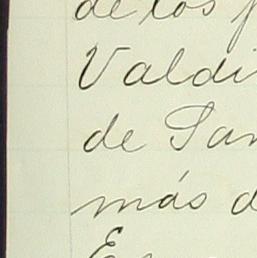 de los
Valdi
de San
más d